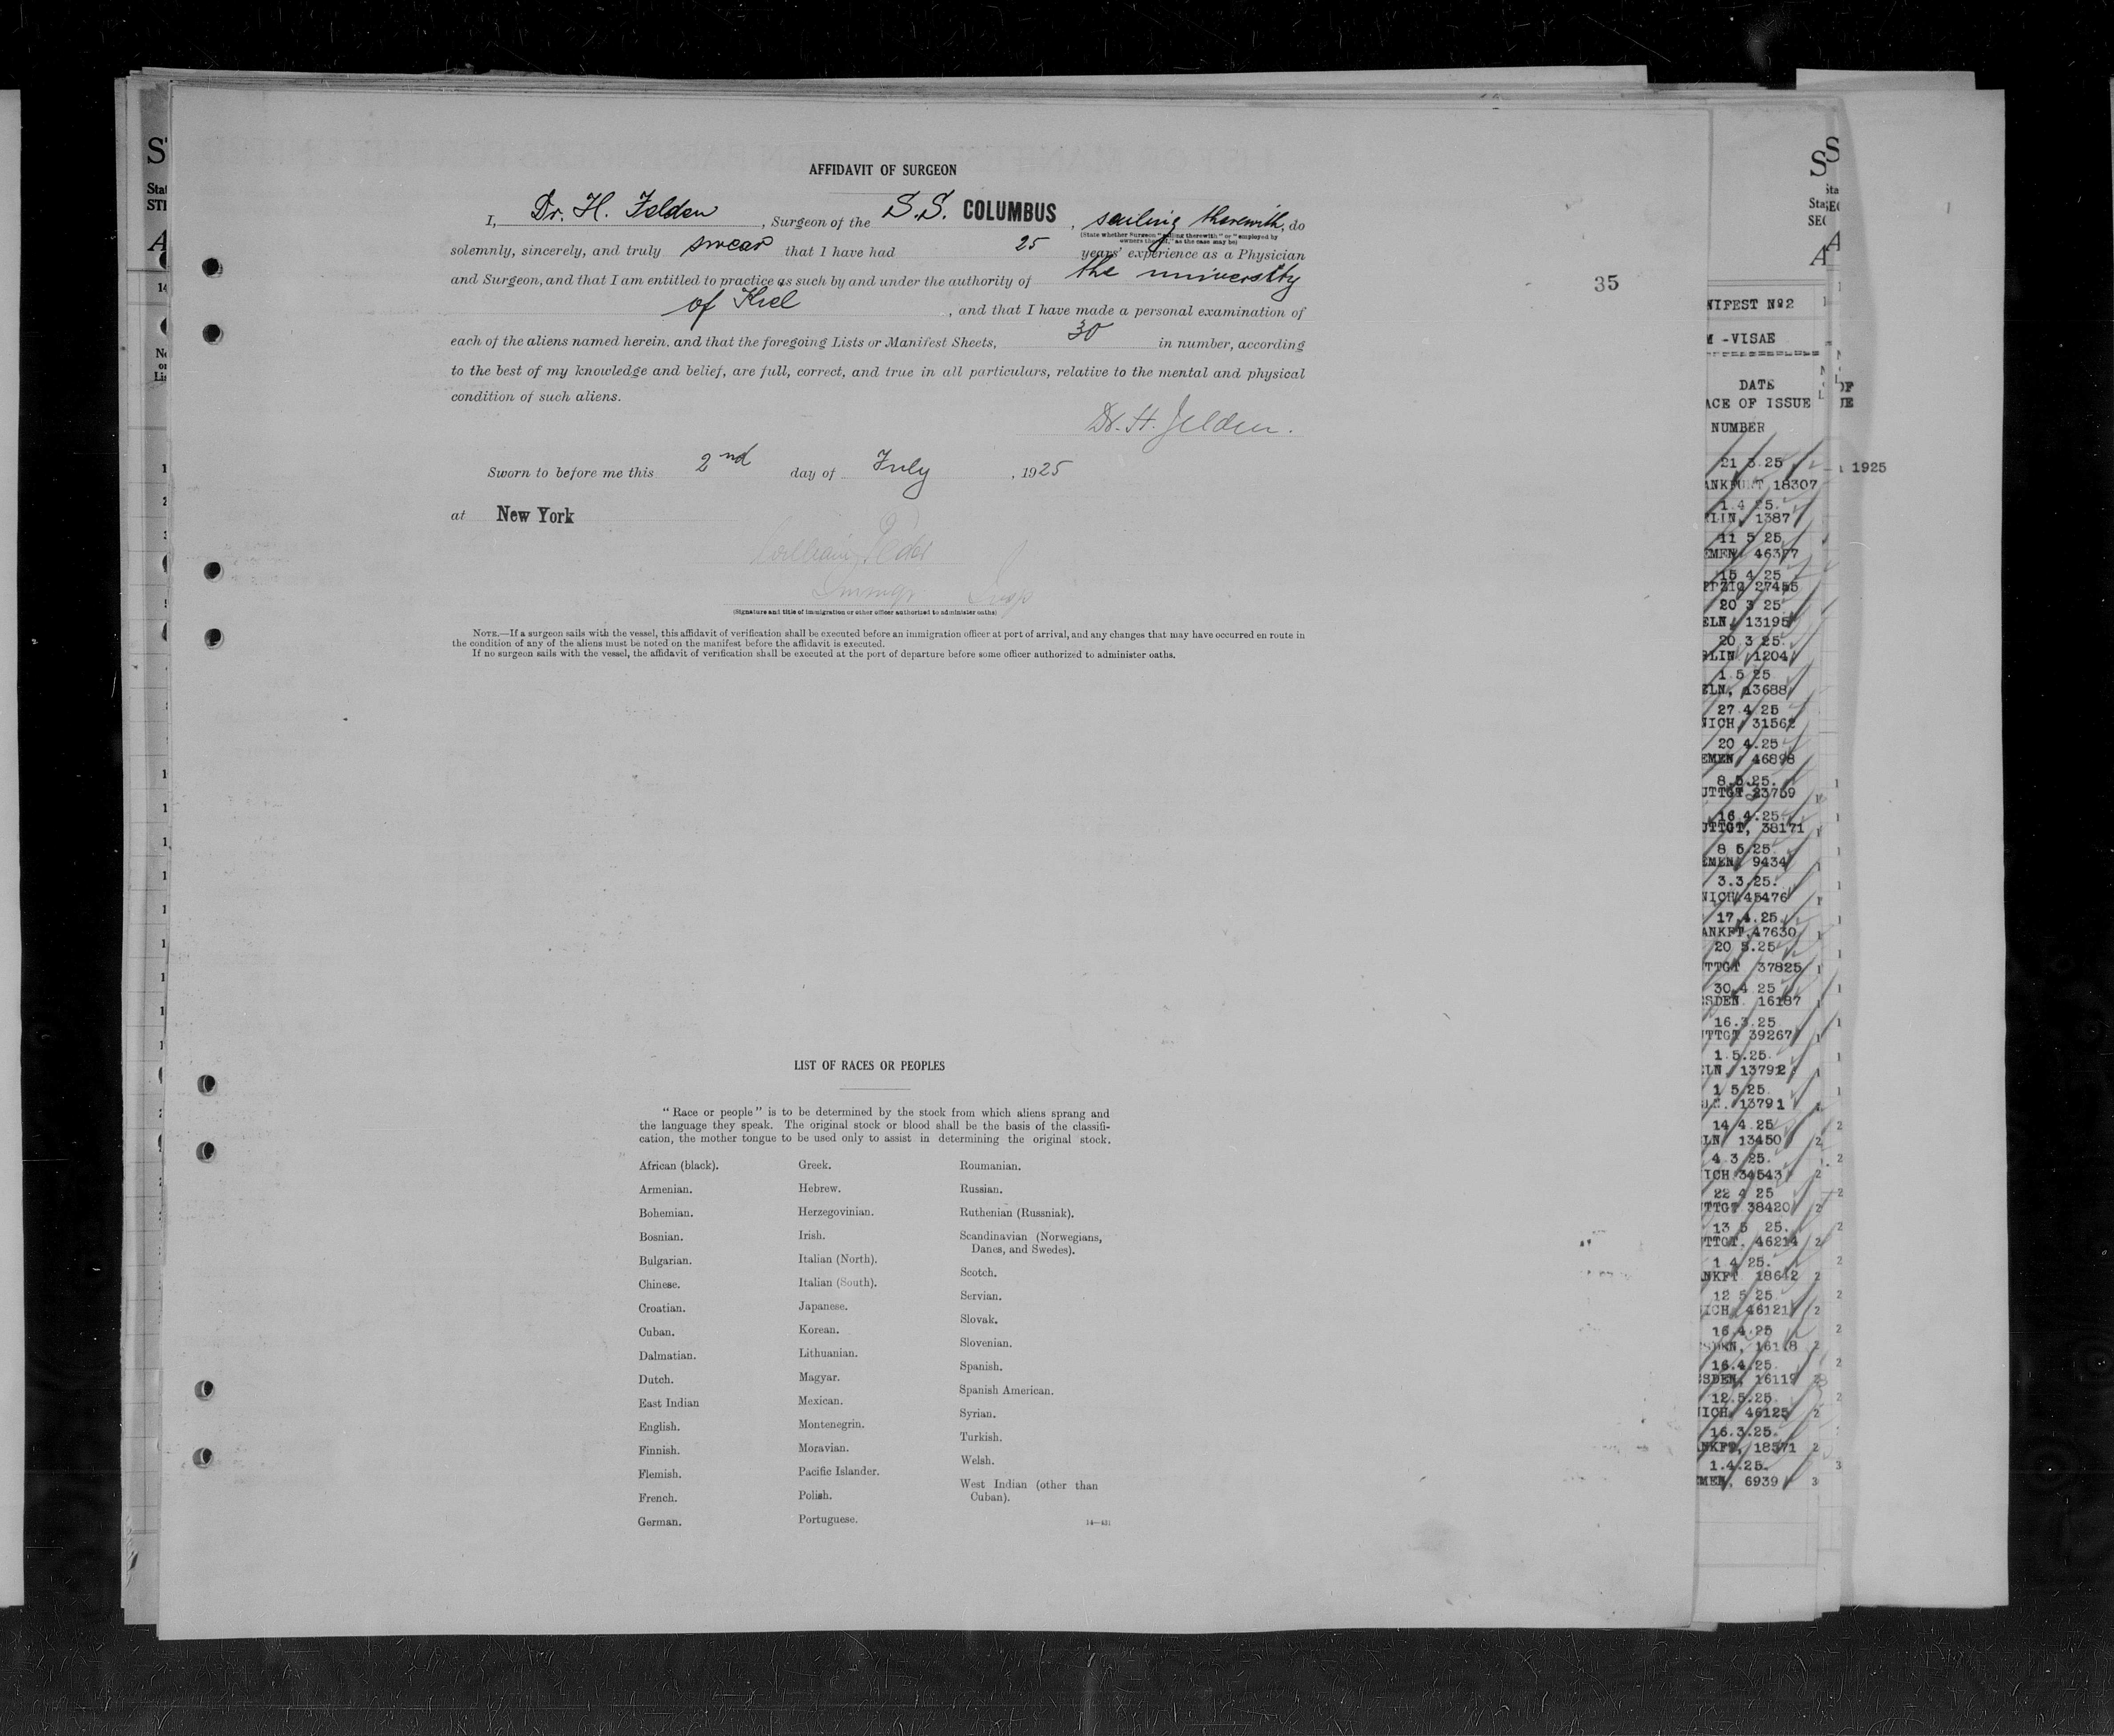 AFFIDAVIT OF SURGEON
I, Dr. H. Felden, Surgeon of the S.S. COLUMBUS, sailing therewith, do
(State whether Surgeon "sailing therewith" or "employed by
owners thereof," as the case may be)
solemnly, sincerely, and truly swear that I have had 25 years' experience as a Physician
and Surgeon, and that I am entitled to practice as such by and under the authority of the university
of Kiel, and that I have made a personal examination of
35
each of the aliens named herein, and that the foregoing Lists or Manifest Sheets, 30 in number, according
to the best of my knowledge and belief, are full, correct, and true in all particulars, relative to the mental and physical
condition of such aliens.
Dr. H. Felden.
Sworn to before me this 2nd day of July, 1925
at New York
William
Immigr Insp
(Signature and title of immigration or other officer authorized to administer oaths)
NOTE.—If a surgeon sails with the vessel, this affidavit of verification shall be executed before an immigration officer at port of arrival, and any changes that may have occurred en route in
the condition of any of the aliens must be noted on the manifest before the affidavit is executed.
If no surgeon sails with the vessel, the affidavit of verification shall be executed at the port of departure before some officer authorized to administer oaths.
LIST OF RACES OR PEOPLES
"Race or people" is to be determined by the stock from which aliens sprang and
the language they speak. The original stock or blood shall be the basis of the classifi-
cation, the mother tongue to be used only to assist in determining the original stock.
African (black).
Armenian.
Bohemian.
Bosnian.
Bulgarian.
Chinese.
Croatian.
Cuban.
Dalmatian.
Dutch.
East Indian
English.
Finnish.
Flemish.
French.
German.
Greek.
Hebrew.
Herzegovinian.
Irish.
Italian (North).
Italian (South).
Japanese.
Korean.
Lithuanian.
Magyar.
Mexican.
Montenegrin.
Moravian.
Pacific Islander.
Polish.
Portuguese.
Roumanian.
Russian.
Ruthenian (Russniak).
Scandinavian (Norwegians,
Danes, and Swedes).
Scotch.
Servian.
Slovak.
Slovenian.
Spanish.
Spanish American.
Syrian.
Turkish.
Welsh.
West Indian (other than
Cuban).
14—431
NIFEST Nº2
-VISAE
DATE
ACE OF ISSUE
NUMBER
21 3.25
ANKFURT 18307
1.4 25.
LIN, 1387
11 5 25
EMEN 46377
15 4 25
IPZIG 27455
20 3 25
ELN, 13195
20 3 25.
RLIN 1204
1.5 25
ELN, 13688
27.4 25
NICH, 31562
20 4.25
EMEN, 46898
8.5.25.
UTTGT 23759
16.4.25
UTTGT, 38171
8 5 25
EMEN 9434
3.3.25.
NICH 45476
17.4.25.
ANKFT, 47630
20 3.25
TTGT 37825
30.4 25
SDEN 16187
16.3.25
TTGT 39267
1.5.25.
LN, 13792
1 5 25.
13791
14 4.25
LN 13450
4 3 25.
ICH 34543
22 4 25
TTGT 38420
13 5 25.
TTGT. 46214
1 4 25.
NKFT 18642
12 5 25
ICH, 46121
16.4.25
SDEN, 16118
16.4.25.
SDEN, 16119
12.5.25.
NICH 46125
16.3.25.
NKFT, 18571
1.4.25.
MEN, 6939
1925